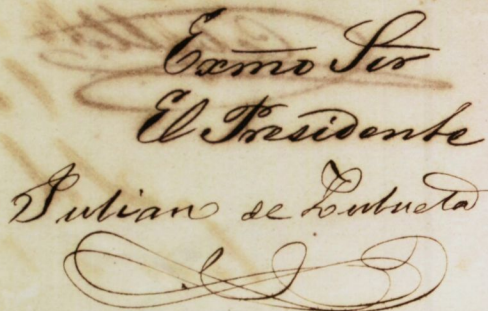 Exmo Sor
El Presidente
Julian de Zulueta